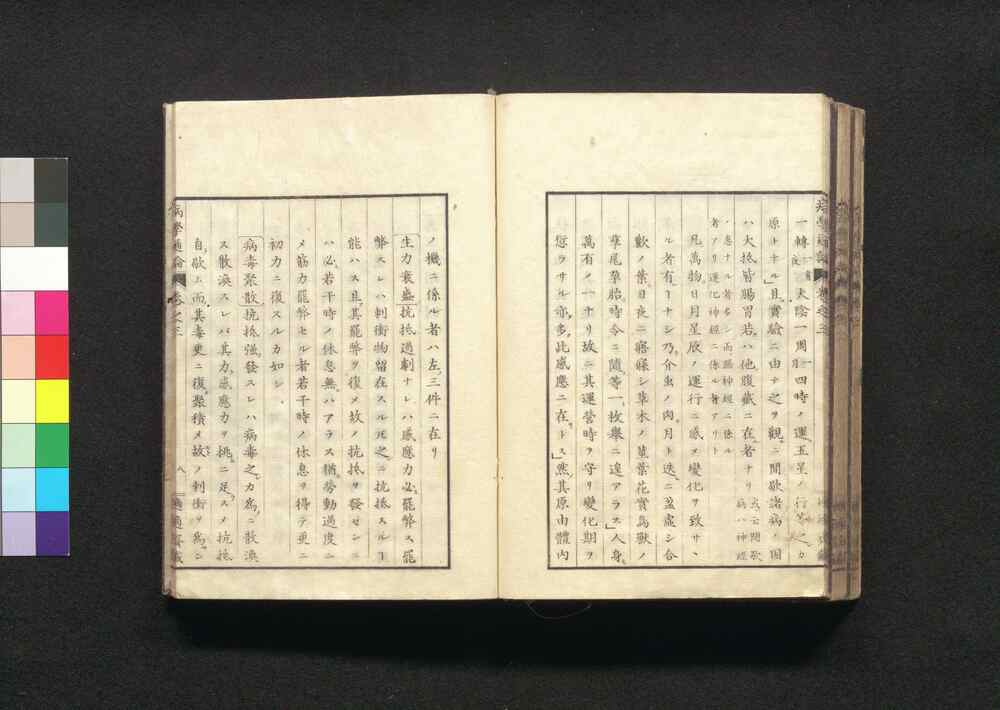 一轉 太陰一周 四時ノ運、五星ノ行等之カ
原トナル」且實驗ニ由テ之ヲ觀ルニ間歇諸病ノ因
ハ大抵皆腸胃若ハ他腹藏ニ在者ナリ 或云間歇病ハ神經
ノ患ナル者多シ而腦神經ニ係ル者アリ運化神經ニ係ル者アリト
凡萬物日月星辰ノ運行ニ感メ變化ヲ致サヽ
ル者有ーナシ乃介虫ノ肉月ト迭ニ盈虚シ合
歡ノ葉日夜ニ寤寐シ草木ノ莖葉花實鳥獸ノ
孳尾孕胎時令ニ隨等一枚擧ニ遑アラス」人身
萬有ノ一ナリ故ニ其運營時ヲ守リ變化期ヲ
愆ラサル亦多此感應ニ在ートス」然其原由體内
ノ機ニ係ル者ハ左ノ三件ニ在リ
生力衰盛抗抵過劇ナレハ感應力必罷弊ス罷
弊スレハ刺衝物留在スル圧之ニ抗抵スルー
能ハス且其罷弊ヲ復メ故ノ抗抵ヲ發センニ
ハ必若干時ノ休息無ハアラス猶勞動過度ニ
メ筋力罷弊セル者若干時ノ休息ヲ得テ更ニ
初力ニ復スルカ如シ
病毒聚散抗抵強發スレハ病毒之カ為ニ散渙
ス散渙スレバ其力感應力ヲ挑ニ足スメ抗抵
自歇ム而其毒更ニ復聚積メ故ノ刺衝ヲ為ニ
病學通論 卷之三